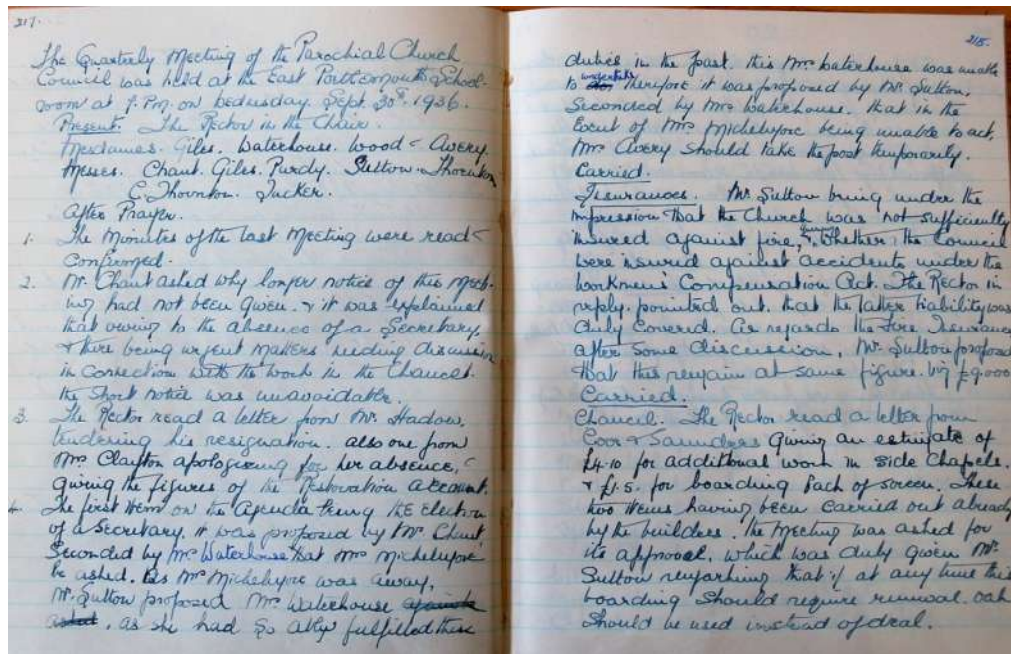 217.
The Quarterly Meeting of the Parochial Church
Council was held at the East Portlemouth School-
room at 7. P.M. on Wednesday. Sept. 30th. 1936.
Present. The Rector in the Chair.
Mesdames. Giles. Waterhouse. Wood & Avery.
Messrs. Chant. Giles. Purdy. Sutton. Thornton
C. Thornton. Tucker.
After Prayer.
1. The Minutes of the last Meeting were read &
confirmed.
2. Mr. Chant asked why longer notice of this meet-
ing had not been given. & it was explained
that owing to the absence of a Secretary,
& there being urgent matters needing discussion
in connection with the work in the Chancel.
the short notice was unavoidable.
3. The Rector read a letter from Mr. Hadow.
tendering his resignation. also one from
Mrs Clayton apologising for her absence, &
giving the figures of the Restoration account.
4. The first item on the Agenda being the election
of a Secretary, it was proposed by Mr. Chant,
Seconded by Mrs Waterhouse that Mrs Michelmore
be asked. As Mrs Michelmore was away,
Mr. Sutton proposed Mrs. Waterhouse
asked, as she had so ably fulfilled these
215.
duties in the past. this Mrs Waterhouse was unable
to undertake therefore it was proposed by Mr. Sutton,
Seconded by Mrs Waterhouse. that in the
Event of Mrs Michelmore being unable to act,
Mrs Avery should take the post temporarily.
Carried.
Insurances. Mr. Sutton being under the
impression that the Church was not sufficiently
insured against fire, & whether the Council
were insured against accidents under the
Workmen's Compensation Act. The Rector in
reply. pointed out. that the latter liability was
duly covered. As regards the Fire Insurance
after some discussion, Mr. Sutton proposed
that this remain at same figure. viz £9.000
Carried.
Chancel. The Rector read a letter from
Coor & Saunders giving an estimate of
£4-10 for additional work in side Chapels.
& £1. 5. for boarding back of screen. These
two items having been carried out already
by the builders. the Meeting was asked for
its approval, which was duly given Mr.
Sutton remarking that if at any time this
boarding should require renewal. oak
should be used instead of deal.